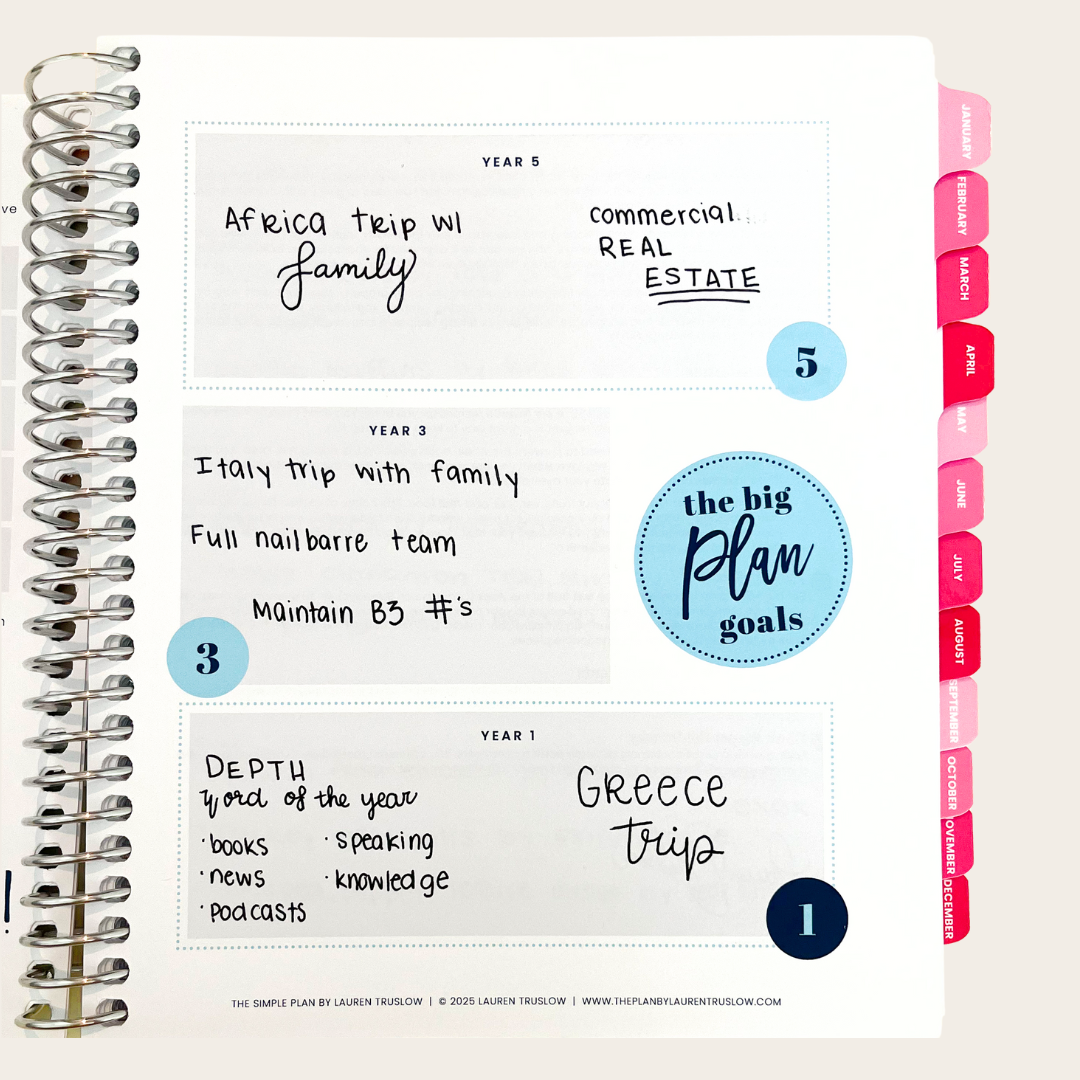 ve
YEAR 5
AFRICA TRIP W/
family
commercial
REAL
ESTATE
5
YEAR 3
Italy trip with family
Full nailbarre team
Maintain B3 #'s
3
the big
plan
goals
YEAR 1
DEPTH
Word of the year
· books
· news
· podcasts
· speaking
· knowledge
Greece
trip
1
THE SIMPLE PLAN BY LAUREN TRUSLOW | © 2025 LAUREN TRUSLOW | WWW.THEPLANBYLAURENTRUSLOW.COM
JANUARY
FEBRUARY
MARCH
APRIL
MAY
JUNE
JULY
AUGUST
SEPTEMBER
OCTOBER
OVEMBER
DECEMBER